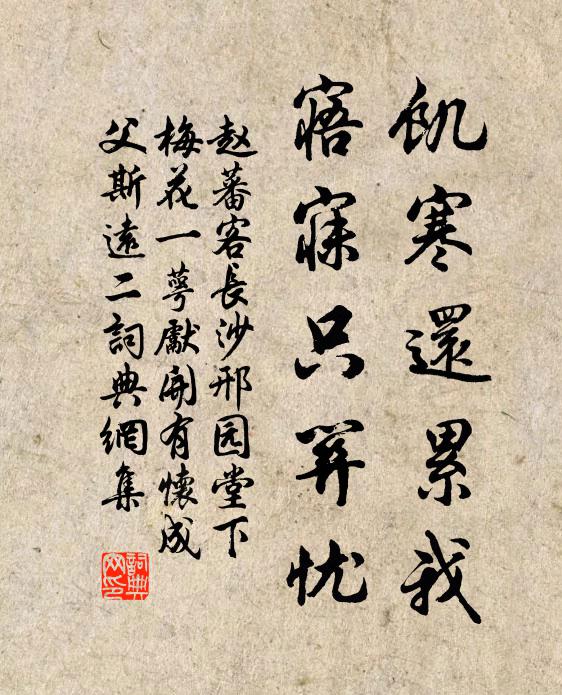 飢寒還累我
寤寐只算忧
赵蕃客長沙邢园堂下
梅花一萼獻開有懷成
父斯遠二詞典網集
詞典网印